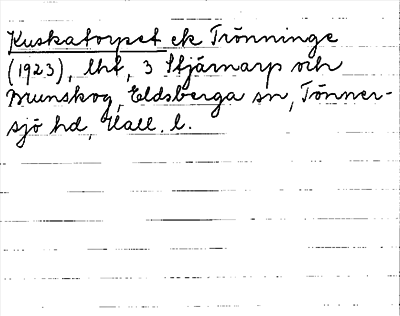 Kuskatorpet ek Trönninge
(1923), lht, 3 Stjärnarp och
Brunskog, Eldsberga sn, Tönner-
sjö hd, Hall. l.